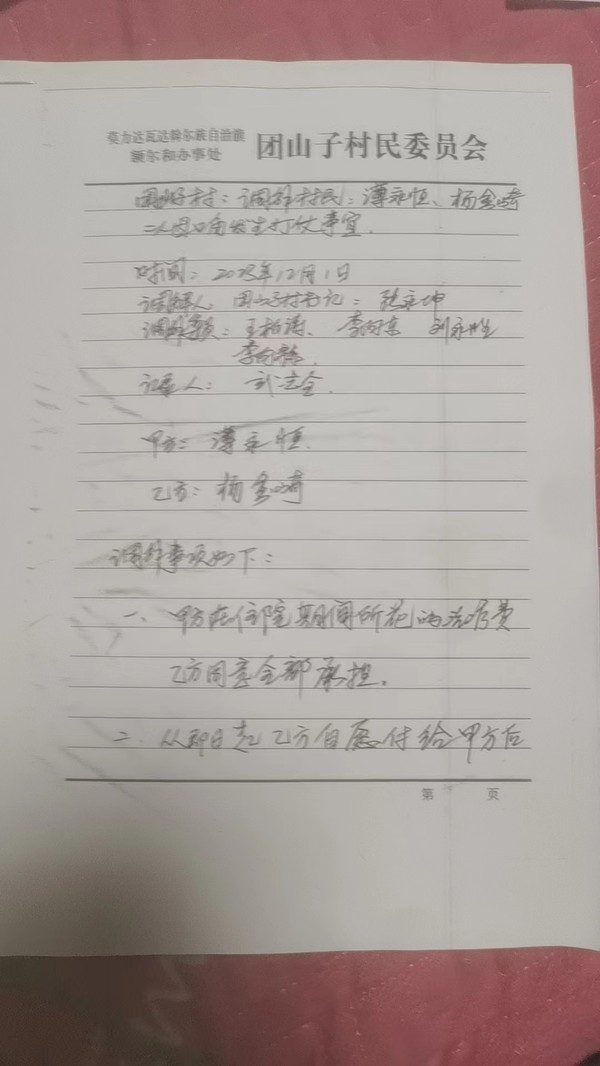 莫力达瓦达斡尔族自治旗
额尔和办事处 团山子村民委员会
团山子村：调解村民：薄永恒、杨金崎
二人因口角发生打仗事宜.
时间：2023年12月1日
调解人 团山子村书记：张永坤
调解委员：王柏涛、李向京 刘永胜
李向
记录人：
甲方：薄永恒.
乙方：杨金崎
调解事项如下：
一、甲方在住院期间所花的治疗费
乙方同意全部承担.
二、从即日起乙方自愿付给甲方后
第 页